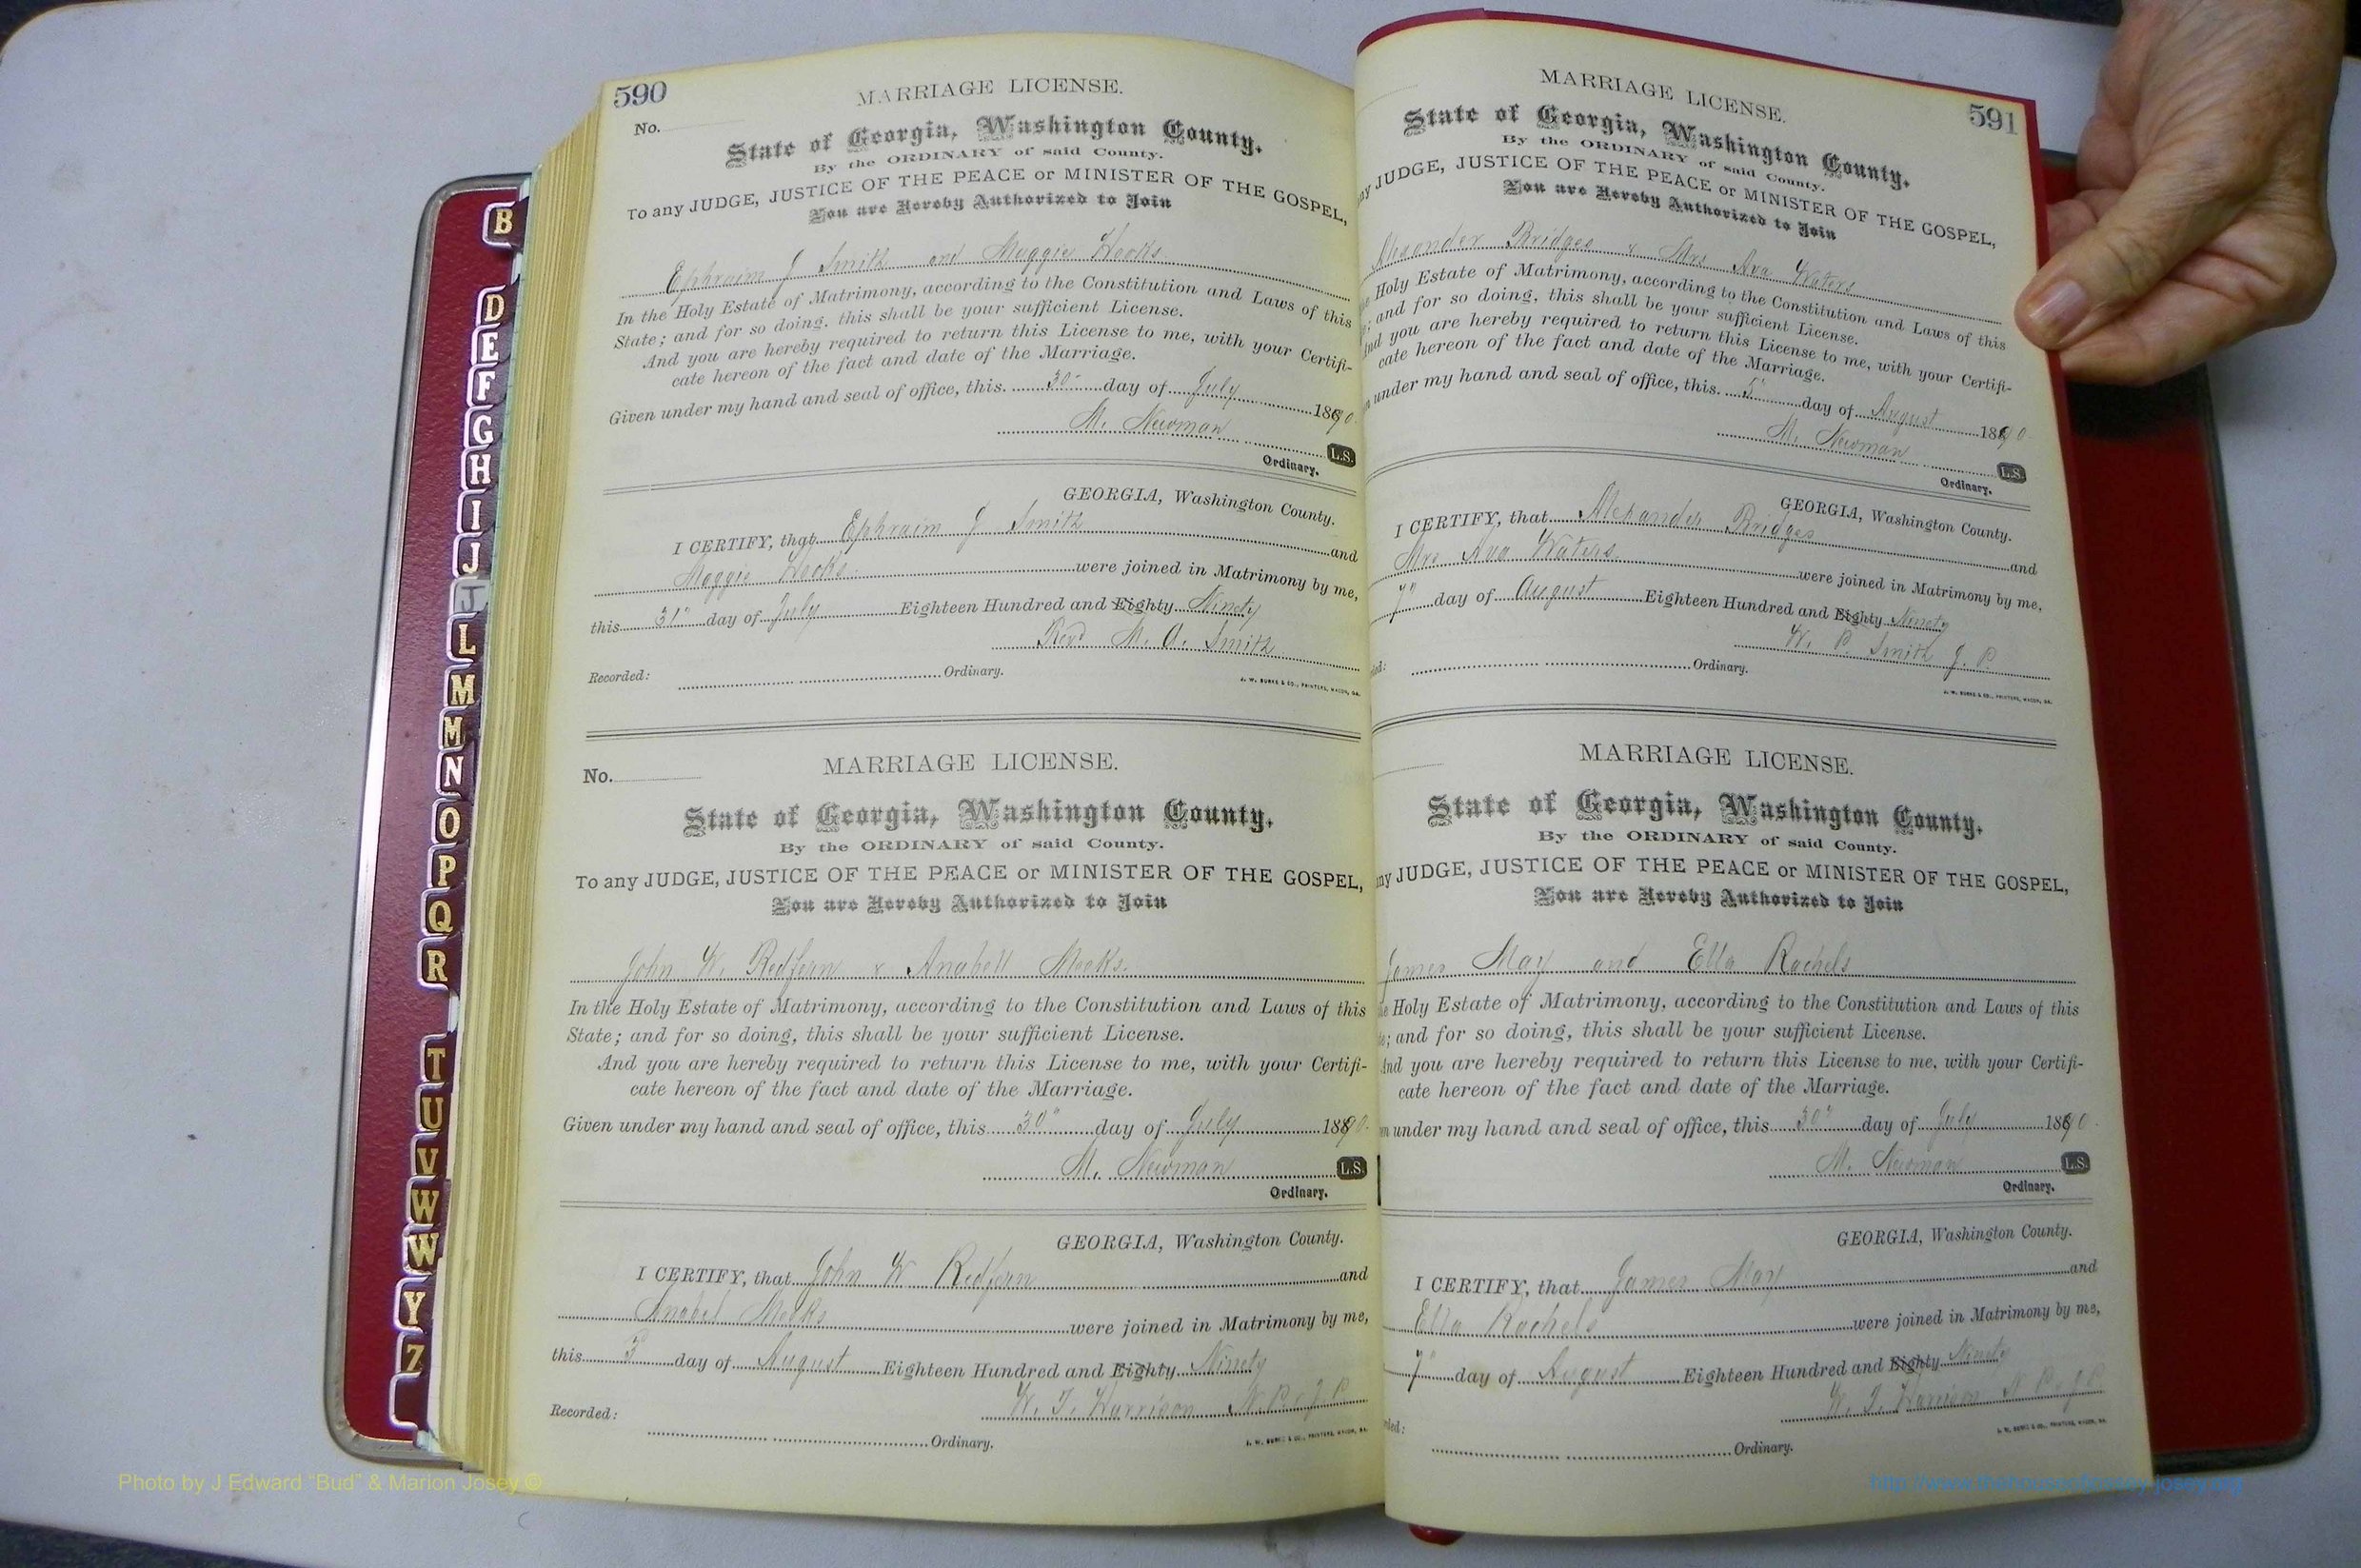 590
MARRIAGE LICENSE.
No.
State of Georgia, Washington County.
By the ORDINARY of said County.
To any JUDGE, JUSTICE OF THE PEACE or MINISTER OF THE GOSPEL,
You are Hereby Authorized to Join
Ephraim J Smith and Maggie Hooks
In the Holy Estate of Matrimony, according to the Constitution and Laws of this
State; and for so doing, this shall be your sufficient License.
And you are hereby required to return this License to me, with your Certifi-
cate hereon of the fact and date of the Marriage.
Given under my hand and seal of office, this 30" day of July 1890
M. Newman L.S.
Ordinary.
GEORGIA, Washington County.
I CERTIFY, that Ephraim J Smith and
Maggie Hooks were joined in Matrimony by me,
this 31" day of July Eighteen Hundred and Eighty Ninety
Revd M. A. Smith
Recorded: Ordinary.
J. W. BURKE & CO., PRINTERS, MACON, GA.
MARRIAGE LICENSE.
No.
State of Georgia, Washington County.
By the ORDINARY of said County.
To any JUDGE, JUSTICE OF THE PEACE or MINISTER OF THE GOSPEL,
You are Hereby Authorized to Join
John W. Redfern & Anabell Meeks.
In the Holy Estate of Matrimony, according to the Constitution and Laws of this
State; and for so doing, this shall be your sufficient License.
And you are hereby required to return this License to me, with your Certifi-
cate hereon of the fact and date of the Marriage.
Given under my hand and seal of office, this 30" day of July 1890.
M. Newman L.S.
Ordinary.
GEORGIA, Washington County.
I CERTIFY, that John W Redfern and
Anabel Meeks were joined in Matrimony by me,
this 3 day of August Eighteen Hundred and Eighty Ninety
W. T. Harrison N. P. & J P
Recorded: Ordinary.
J. W. BURKE & CO., PRINTERS, MACON, GA.
591
MARRIAGE LICENSE.
State of Georgia, Washington County.
By the ORDINARY of said County.
ny JUDGE, JUSTICE OF THE PEACE or MINISTER OF THE GOSPEL,
You are Hereby Authorized to Join
Alexander Bridges & Mrs Ava Waters
e Holy Estate of Matrimony, according to the Constitution and Laws of this
e; and for so doing, this shall be your sufficient License.
And you are hereby required to return this License to me, with your Certifi-
cate hereon of the fact and date of the Marriage.
n under my hand and seal of office, this 5" day of August 1890
M. Newman L.S.
Ordinary.
GEORGIA, Washington County.
I CERTIFY, that Alexander Bridges and
Mrs Ava Waters were joined in Matrimony by me,
7" day of August Eighteen Hundred and Eighty Ninety
W. P. Smith J. P.
ded: Ordinary.
J. W. BURKE & CO., PRINTERS, MACON, GA.
MARRIAGE LICENSE.
State of Georgia, Washington County.
By the ORDINARY of said County.
ny JUDGE, JUSTICE OF THE PEACE or MINISTER OF THE GOSPEL,
You are Hereby Authorized to Join
James May and Ella Rachels
e Holy Estate of Matrimony, according to the Constitution and Laws of this
e; and for so doing, this shall be your sufficient License.
And you are hereby required to return this License to me, with your Certifi-
cate hereon of the fact and date of the Marriage.
n under my hand and seal of office, this 30" day of July 1890
M. Newman L.S.
Ordinary.
GEORGIA, Washington County.
I CERTIFY, that James May and
Ella Rachels were joined in Matrimony by me,
7" day of August Eighteen Hundred and Eighty Ninety
W. T. Harrison N P & J P
ded: Ordinary.
J. W. BURKE & CO., PRINTERS, MACON, GA.
B
D
E
F
G
H
I
J
J
L
M
M
N
O
P
Q
R
T
U
V
W
W
Y
Z
Photo by J Edward "Bud" & Marion Josey ©